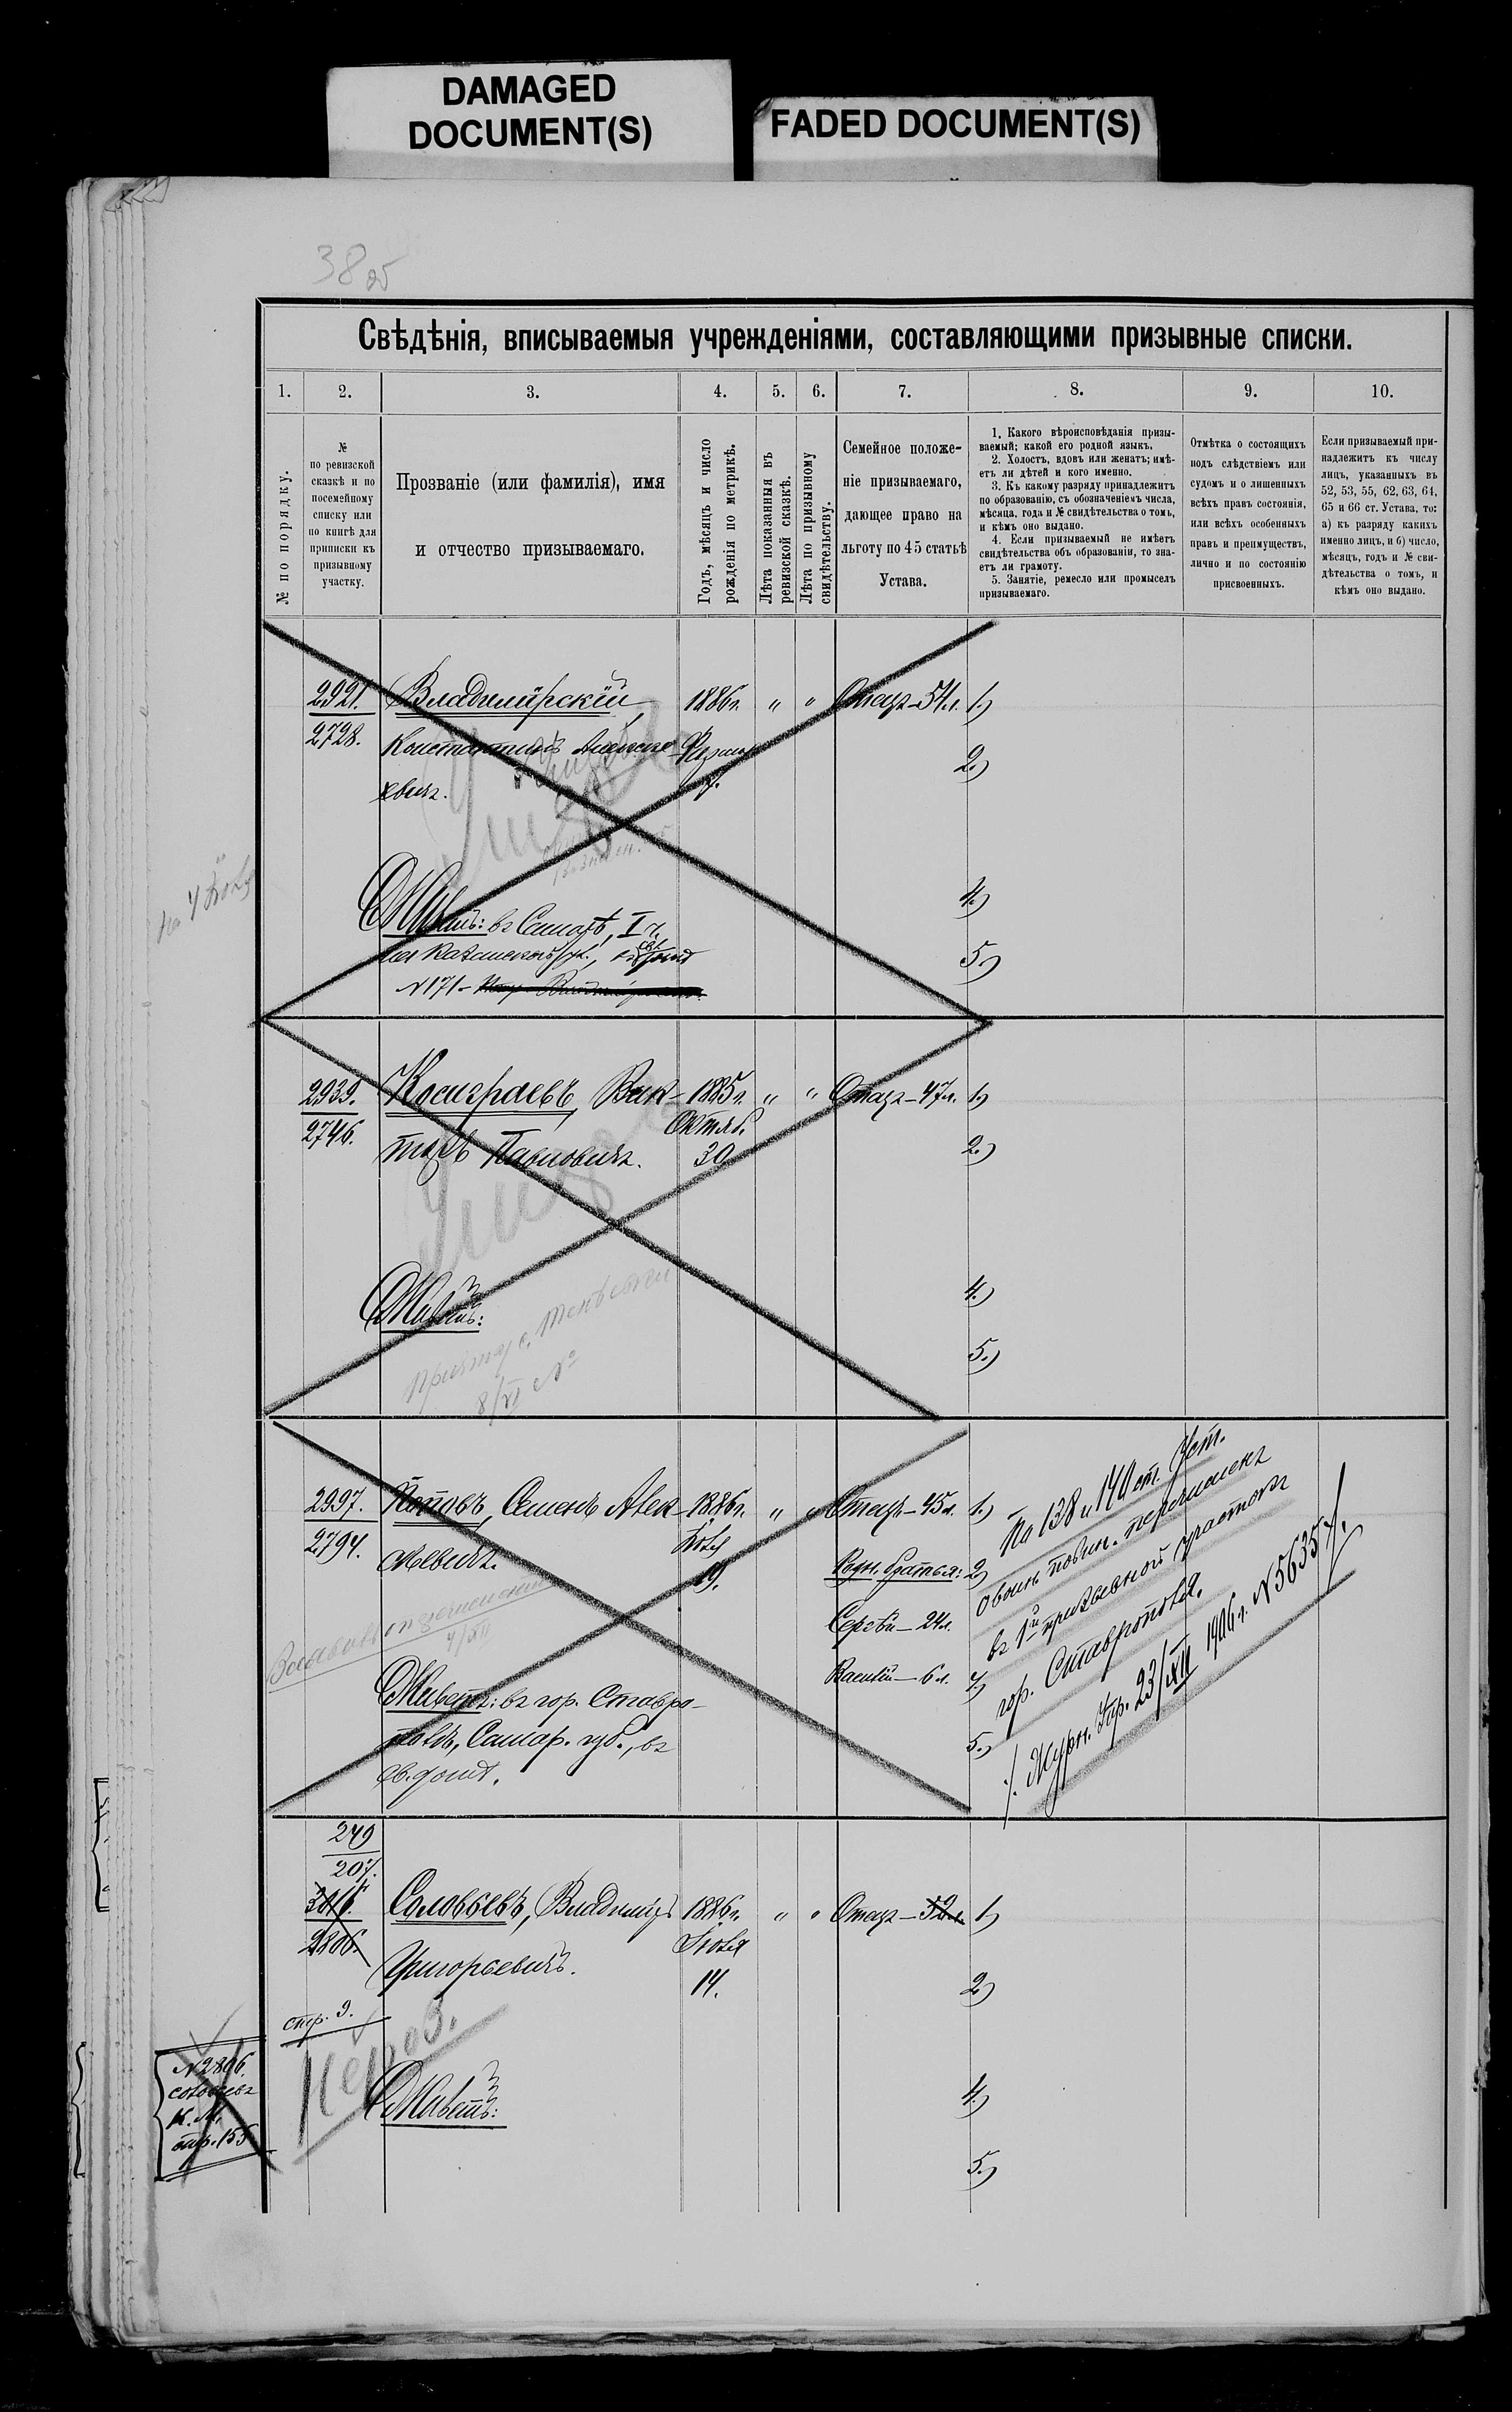 DAMAGED
DOCUMENT(S)
FADED DOCUMENT(S)
38 об
Свѣдѣнія, вписываемыя учрежденіями, составляющими призывные списки.
1. 2. 3. 4. 5. 6. 7. 8. 9. 10.
№ по порядку.
№
по ревизской
сказкѣ и по
посемейному
списку или
по книгѣ для
приписки къ
призывному
участку.
Прозваніе (или фамилія), имя
и отчество призываемаго.
Годъ, мѣсяцъ и число
рожденія по метрикѣ.
Лѣта показанныя въ
ревизской сказкѣ.
Лѣта по призывному
свидѣтельству.
Семейное положе-
ніе призываемаго,
дающее право на
льготу по 45 статьѣ
Устава.
1. Какого вѣроисповѣданія призы-
ваемый; какой его родной языкъ.
2. Холостъ, вдовъ или женатъ; имѣ-
етъ ли дѣтей и кого именно.
3. Къ какому разряду принадлежитъ
по образованію, съ обозначеніемъ числа,
мѣсяца, года и № свидѣтельства о томъ,
и кѣмъ оно выдано.
4. Если призываемый не имѣетъ
свидѣтельства объ образованіи, то зна-
етъ ли грамоту.
5. Занятіе, ремесло или промыселъ
призываемаго.
Отмѣтка о состоящихъ
подъ слѣдствіемъ или
судомъ и о лишенныхъ
всѣхъ правъ состоянія,
или всѣхъ особенныхъ
правъ и преимуществъ,
лично и по состоянію
присвоенныхъ.
Если призываемый при-
надлежитъ къ числу
лицъ, указанныхъ въ
52, 53, 55, 62, 63, 64,
65 и 66 ст. Устава, то:
а) къ разряду какихъ
именно лицъ, и б) число,
мѣсяцъ, годъ и № сви-
дѣтельства о томъ, и
кѣмъ оно выдано.
2921. Владимірскій, 1886 г. " " Отецъ – 54 л. 1)
2728. Константинъ
евичъ. 2)
4)
Живетъ: въ Самарѣ, I ч.
на Казанской ул., 5)
№ 171 –
2939. Вик- 1885 г. " " Отецъ – 47 л. 1)
2746. Октяб.
торъ Павловичъ. 30 2)
Живетъ: 4)
8/XI №
5)
2997. Поповъ, Семенъ Алек- 1886 г. " " Отецъ – 45 л. 1)
2794. сѣевичъ. Іюля
19. Родн. братья: 2)
Сергѣй – 24 л.
Василій – 6 л. 4)
Живетъ: въ гор. Ставро-
полѣ, Самар. губ., въ 5)
св. домѣ.
По 138 и 140 ст. Уст.
о воин. повин. перечисленъ
въ 1й призывной участокъ
гор. Ставрополя.
/. Журн. Гор. 23/XII 1906 г. № 5635 /.
249
207.
3016. Соловьевъ, Владиміръ 1886 г. " " Отецъ – 52 л. 1)
2806. Іюля
Григорьевичъ. 14. 2)
стр. 9.
Живетъ: 4)
5)
№ 2806.
Соловьевъ
К. М.
стр. 155